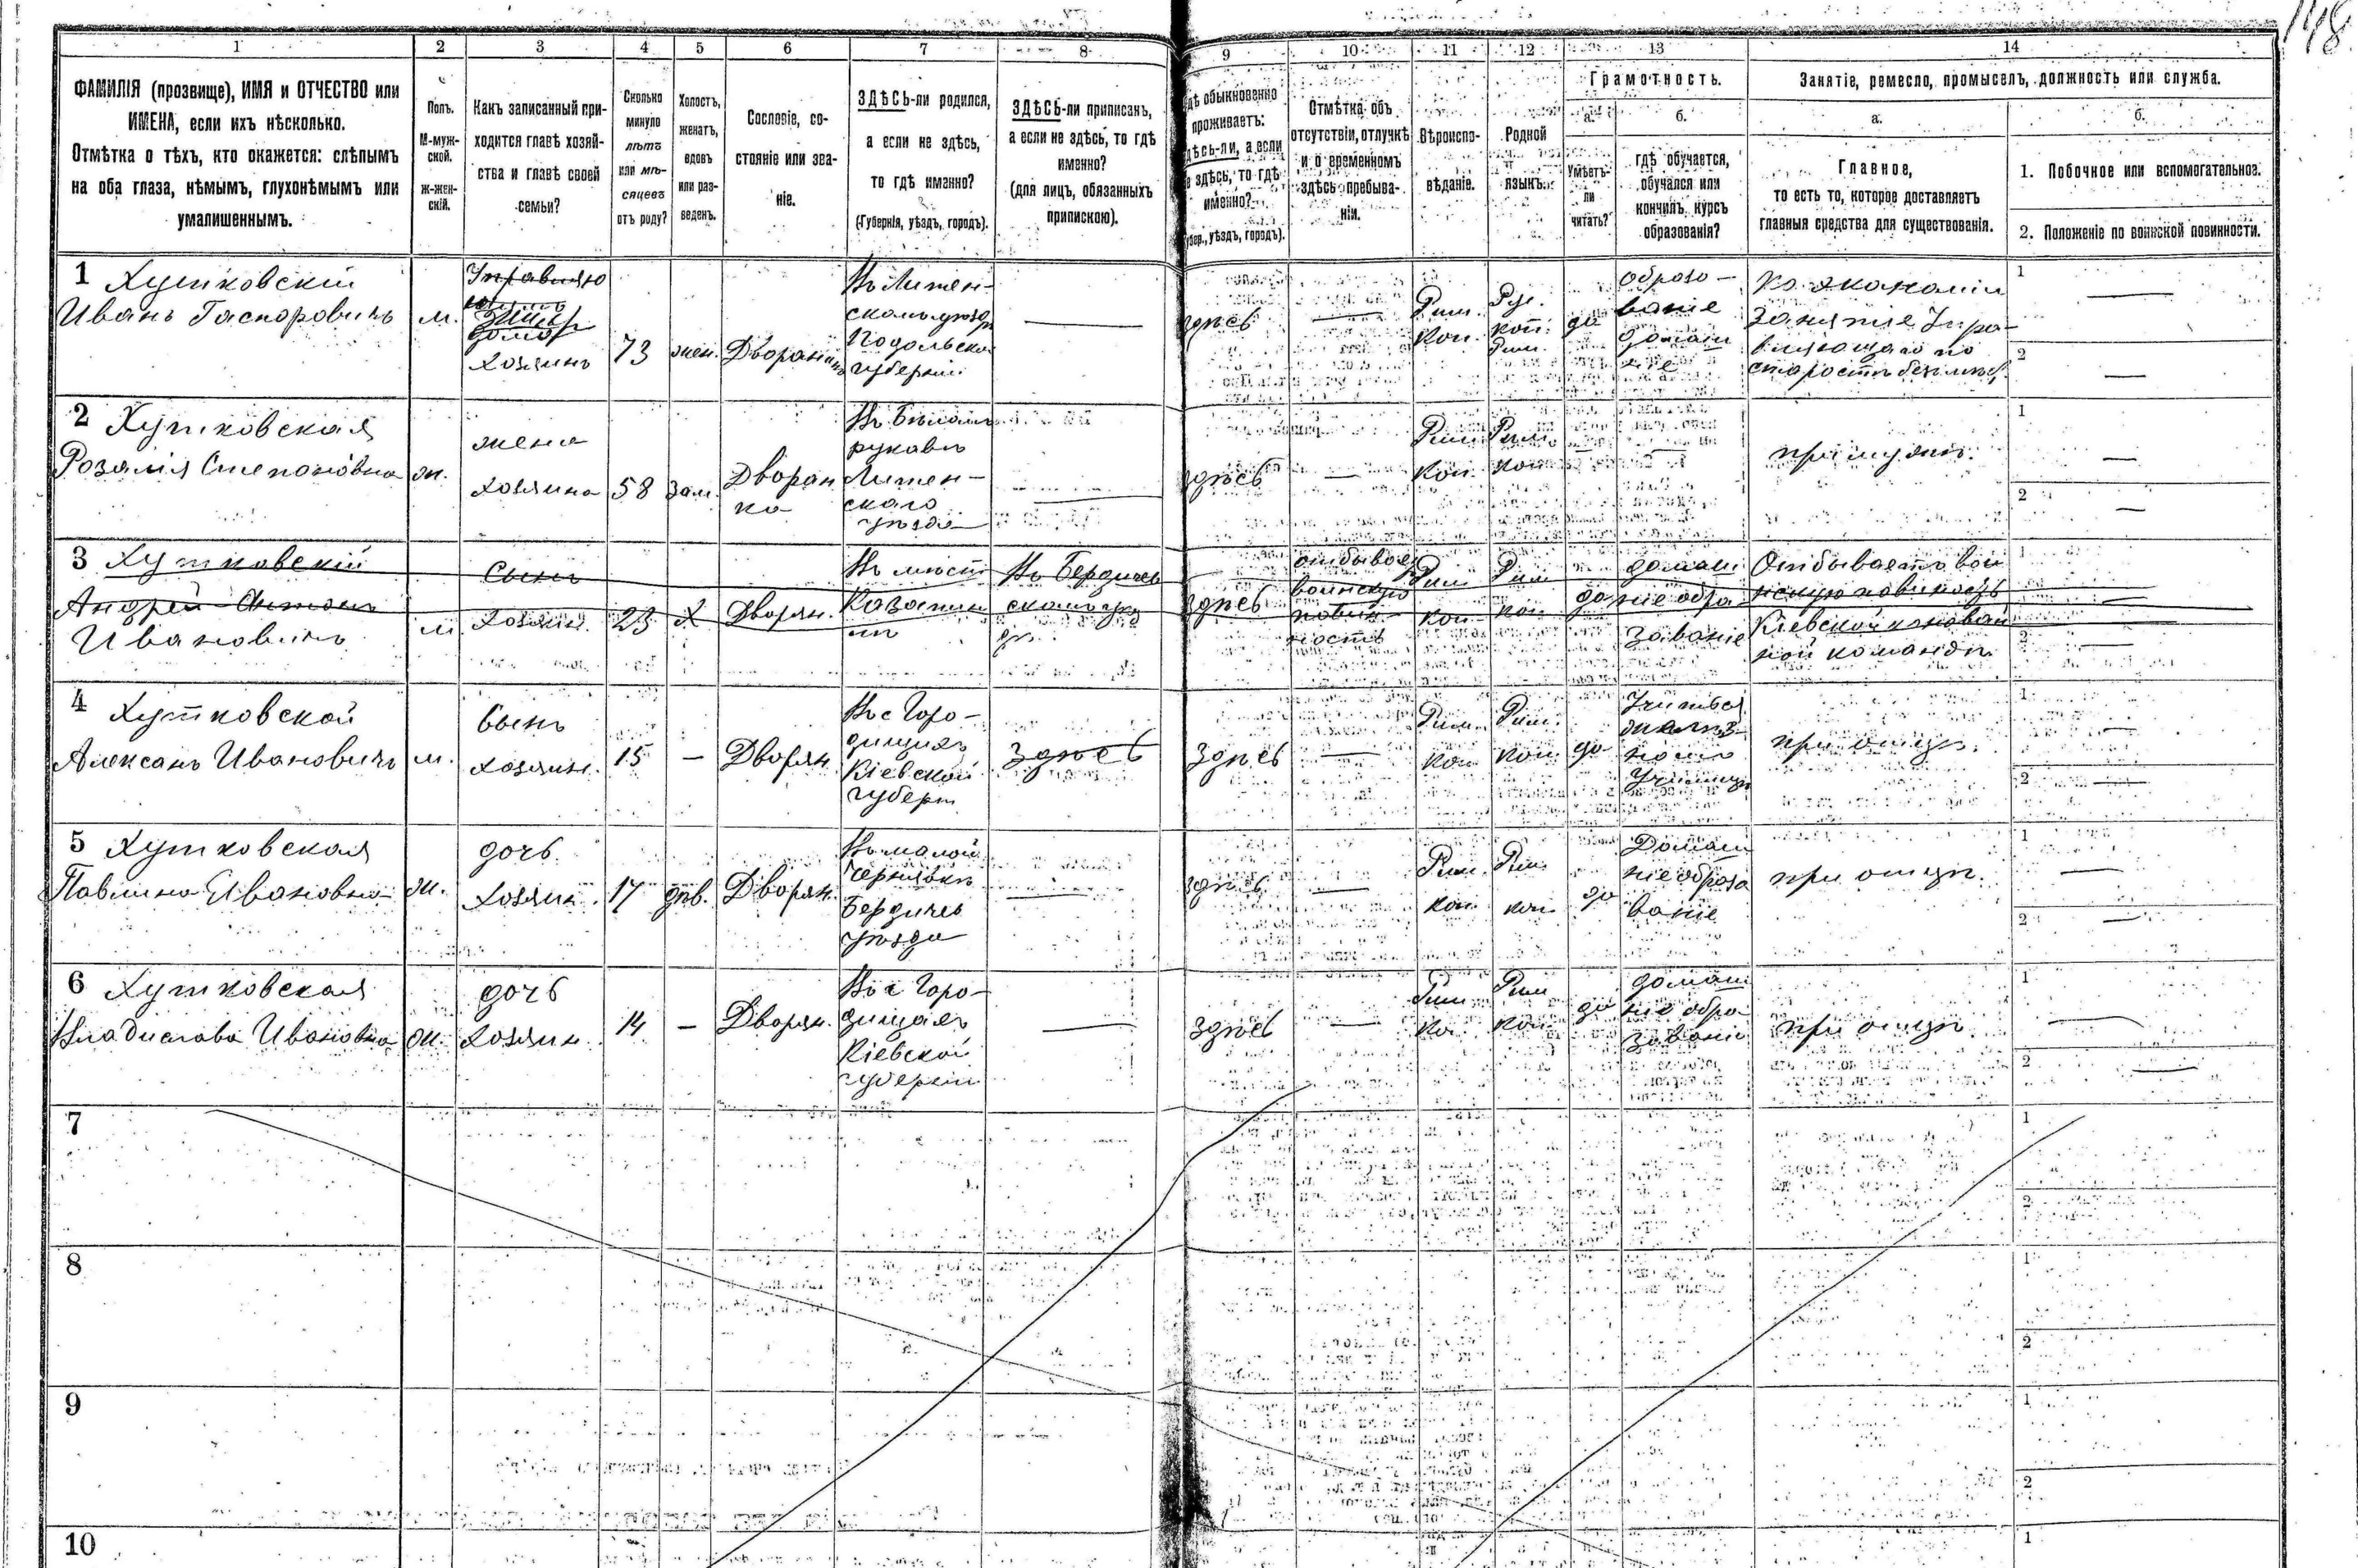 148
1 2 3 4 5 6 7 8 9 10 11 12 13 14
ФАМИЛІЯ (прозвище), ИМЯ и ОТЧЕСТВО или
ИМЕНА, если ихъ нѣсколько.
Отмѣтка о тѣхъ, кто окажется: слѣпымъ
на оба глаза, нѣмымъ, глухонѣмымъ или
умалишеннымъ.
Полъ.
М-муж-
ской.
ж-жен-
скій.
Какъ записанный при-
ходится главѣ хозяй-
ства и главѣ своей
семьи?
Сколько
минуло
лѣтъ
или мѣ-
сяцевъ
отъ роду?
Холостъ,
женатъ,
вдовъ
или раз-
веденъ.
Сословіе, со-
стояніе или зва-
ніе.
ЗДѢСЬ-ли родился,
а если не здѣсь,
то гдѣ именно?
(Губернія, уѣздъ, городъ).
ЗДѢСЬ-ли приписанъ,
а если не здѣсь, то гдѣ
именно?
(для лицъ, обязанныхъ
припискою).
гдѣ обыкновенно
проживаетъ:
здѣсь-ли, а если
не здѣсь, то гдѣ
именно?
уѣздъ, городъ).
Отмѣтка объ
отсутствіи, отлучкѣ
и о временномъ
здѣсь пребыва-
ніи.
Вѣроиспо-
вѣданіе.
Родной
языкъ.
Грамотность.
а.
Умѣетъ-
ли
читать?
б.
гдѣ обучается,
обучался или
кончилъ курсъ
образованія?
Занятіе, ремесло, промыселъ, должность или служба.
а.
Главное,
то есть то, которое доставляетъ
главныя средства для существованія.
б.
1. Побочное или вспомогательное.
2. Положеніе по воинской повинности.
1 Хутковскій
Иванъ Гаспоровичъ
м.
Хозяинъ
73
жен.
Дворанинъ
Въ Литен-
скомъ уѣзд
Подольской
губерніи
—
здѣсь
—
Рим.
Кот.
да
образо-
ваніе
домаш
нее
занятіе Упра-
вляющаго по
1 —
2 —
2 Хутковская
Розалія Степановна
ж.
жена
хозяина
58
зам.
Дворан
ка
Въ Бѣломъ
рукавѣ
Литен-
скаго
уѣзда
—
здѣсь
—
Рим.
Кот.
Рим.
кот.
при мужѣ
1 —
2 —
3 Хутковскій
Андрей-Антонъ
Ивановичъ
м.
Сынъ
хозяин.
23
Х
Дворян.
Въ мѣст
Казатин
ѣ
Въ Бердичев
скомъ уѣз
дѣ
здѣсь
отбывает
воинскую
повин-
ность
Рим
кот
Рим
кот
да
домаш
ніе обра
зованіе
Отбываетъ вои
нскую повиность
Кіевской конвой
ной командѣ
1 —
2 —
4 Хутковской
Алексанъ Ивановичъ
м.
Сынъ
хозяин.
15
—
Дворян.
Въ с Горо-
дищахъ
Кіевской
губерн
здѣсь
здѣсь
—
Рим.
кот
Рим.
кот
да
при отцѣ.
1 —
2 —
5 Хутковская
Павлина Ивановна
ж.
дочь
хозяин.
17
дѣв.
Дворян.
Въ малой
Бердичев
уѣзда
—
здѣсь
—
Рим.
кот
Рим
кот
да
Домаш
ніе образо
ваніе
при отцѣ.
1 —
2 —
6 Хутковская
Владислава Ивановна
ж.
дочь
хозяин.
14
—
Дворян.
Въ с Горо-
дищахъ
Кіевской
губерніи
—
здѣсь
—
Рим
ко.
Рим
кот
да
домаш
ніе обра-
зованіе
при отцѣ
1 —
2 —
7 1
2
8 1
2
9 1
2
10 1